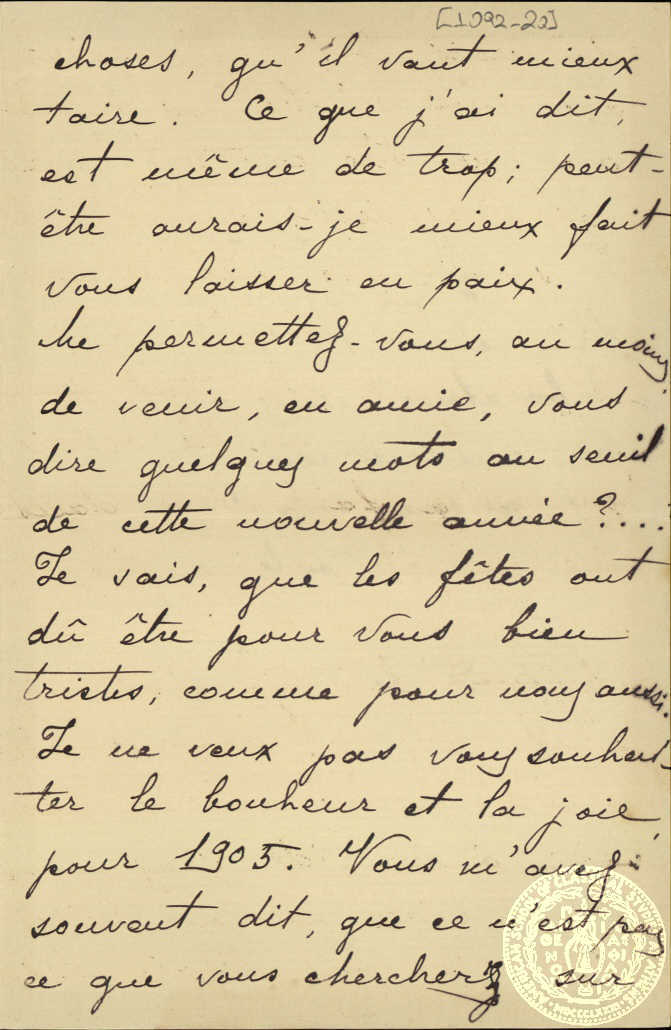 [1092-20]
choses, qu'il vaut mieux
taire. Ce que j'ai dit,
est même de trop; peut-
être aurais-je mieux fait
vous laisser en paix.
Me permettez-vous, au moins,
de venir, en amie, vous
dire quelques mots au seuil
de cette nouvelle année?...
Je sais, que les fêtes ont
dû être pour vous bien
tristes, comme pour nous aussi.
Je ne veux pas vous souhai-
ter le bonheur et la joie
pour 1905. Vous m'avez
souvent dit, que ce n'est pas
ce que vous cherchez sur